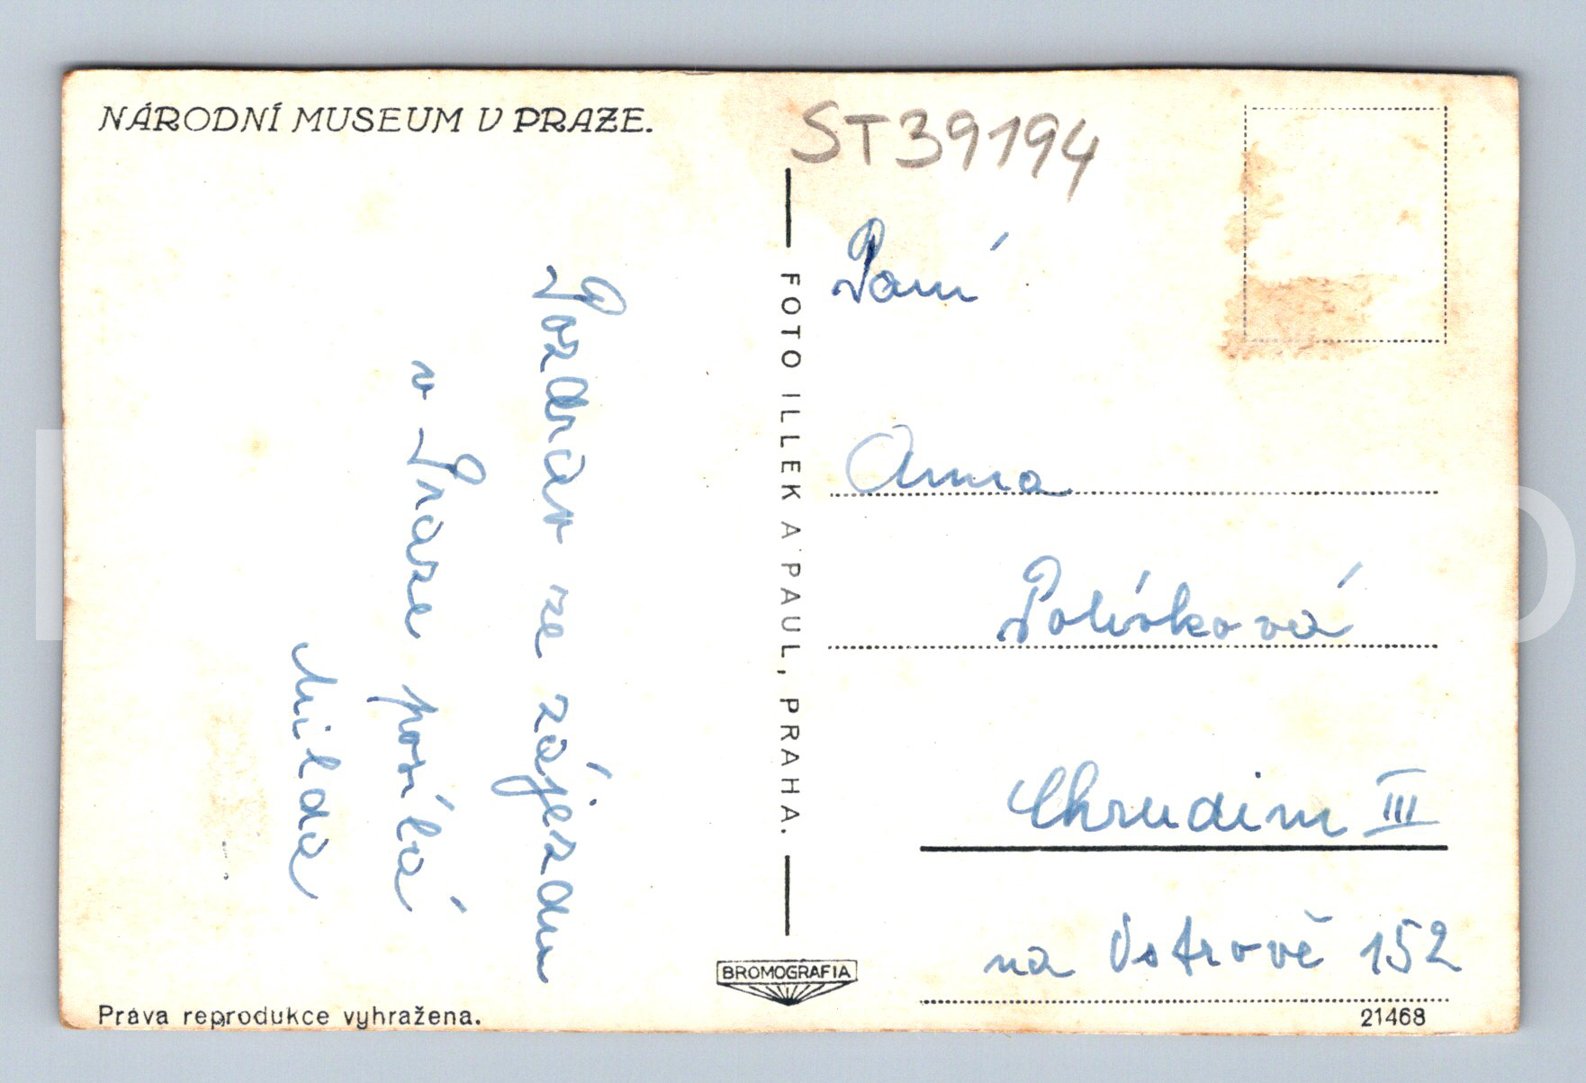 NÁRODNÍ MUSEUM V PRAZE.
ST39194
Pozdrav ze zájezdu
v Praze posílá
Milda
FOTO ILLEK A PAUL, PRAHA.
BROMOGRAFIA
Paní
Anna
Polívková
Chrudim III
na Ostrově 152
Práva reprodukce vyhražena.
21468